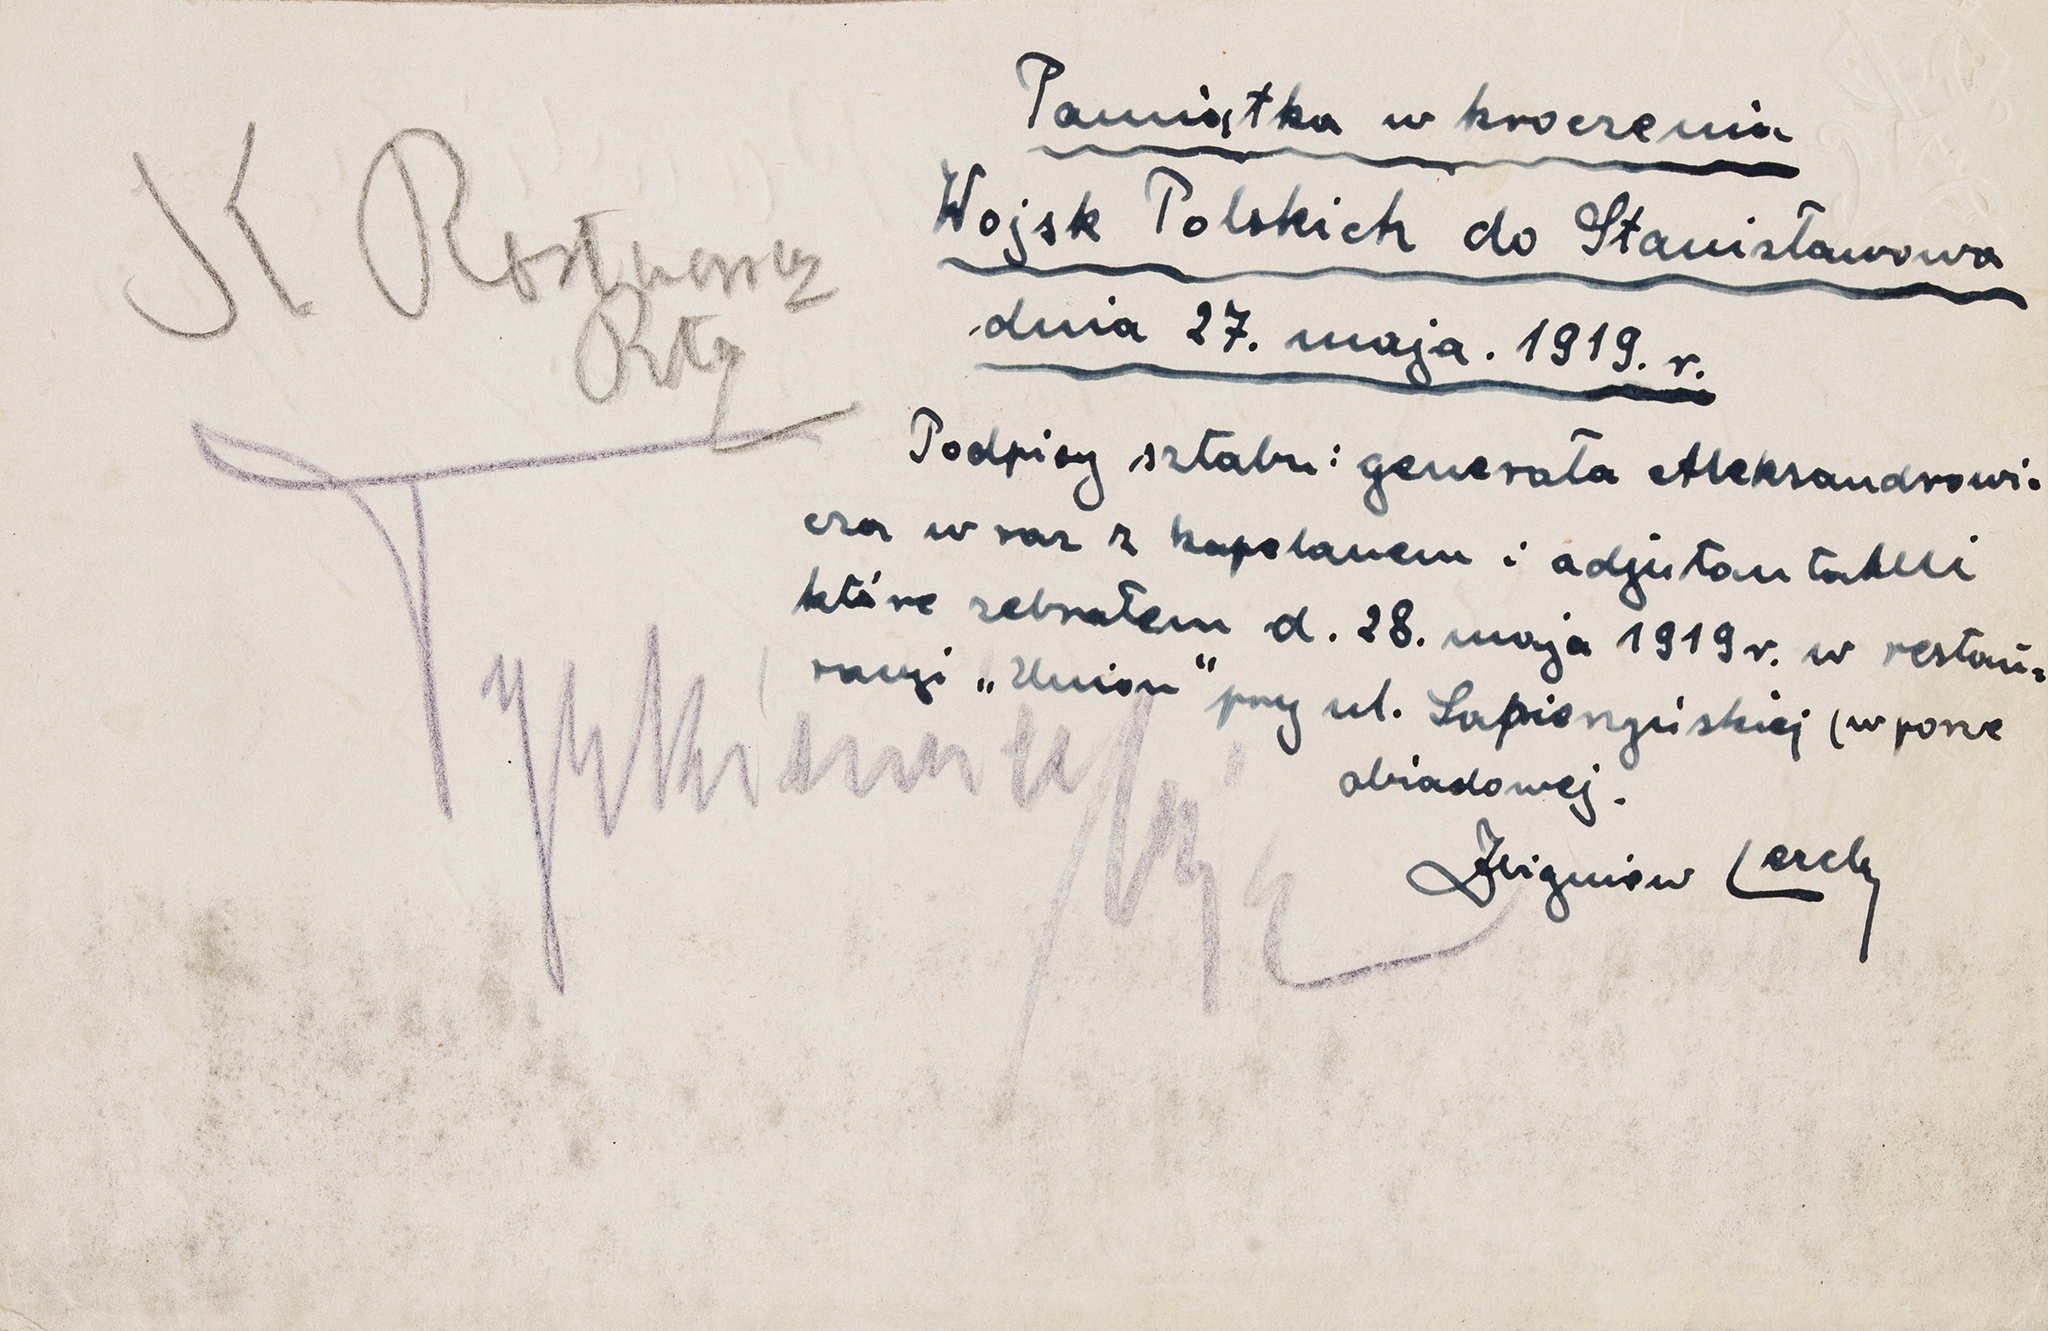 Pamiątka w kroczenia
Wojsk Polskich do Stanisławowa
dnia 27. maja. 1919. r.
Podpisy sztabu: generała Aleksandrowi-
cza w raz z kapelanem i adjutantami
które zebrałem d. 28. maja 1919 r. w restau-
racyi „Union“ przy ul. Sapieżyńskiej (w porze
obiadowej.
Zbigniew
K